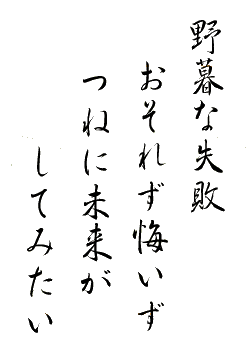 野暮な失敗
おそれず悔いず
つねに未来が
してみたい